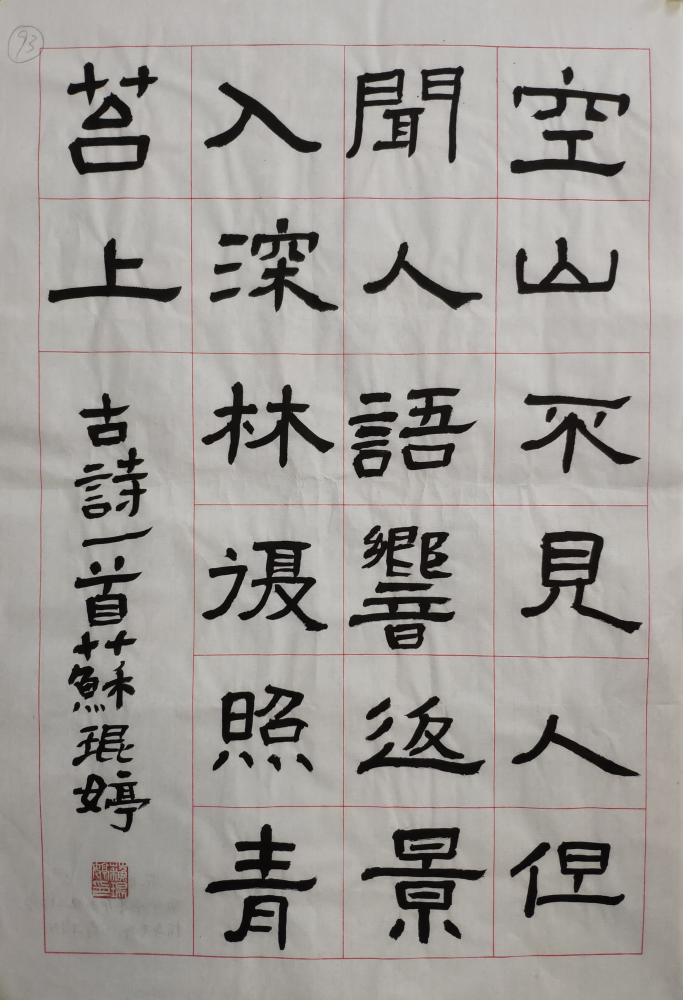 空山不見人但
聞人語響返景
入深林復照青
苔上
古詩一首蘇琨婷
93